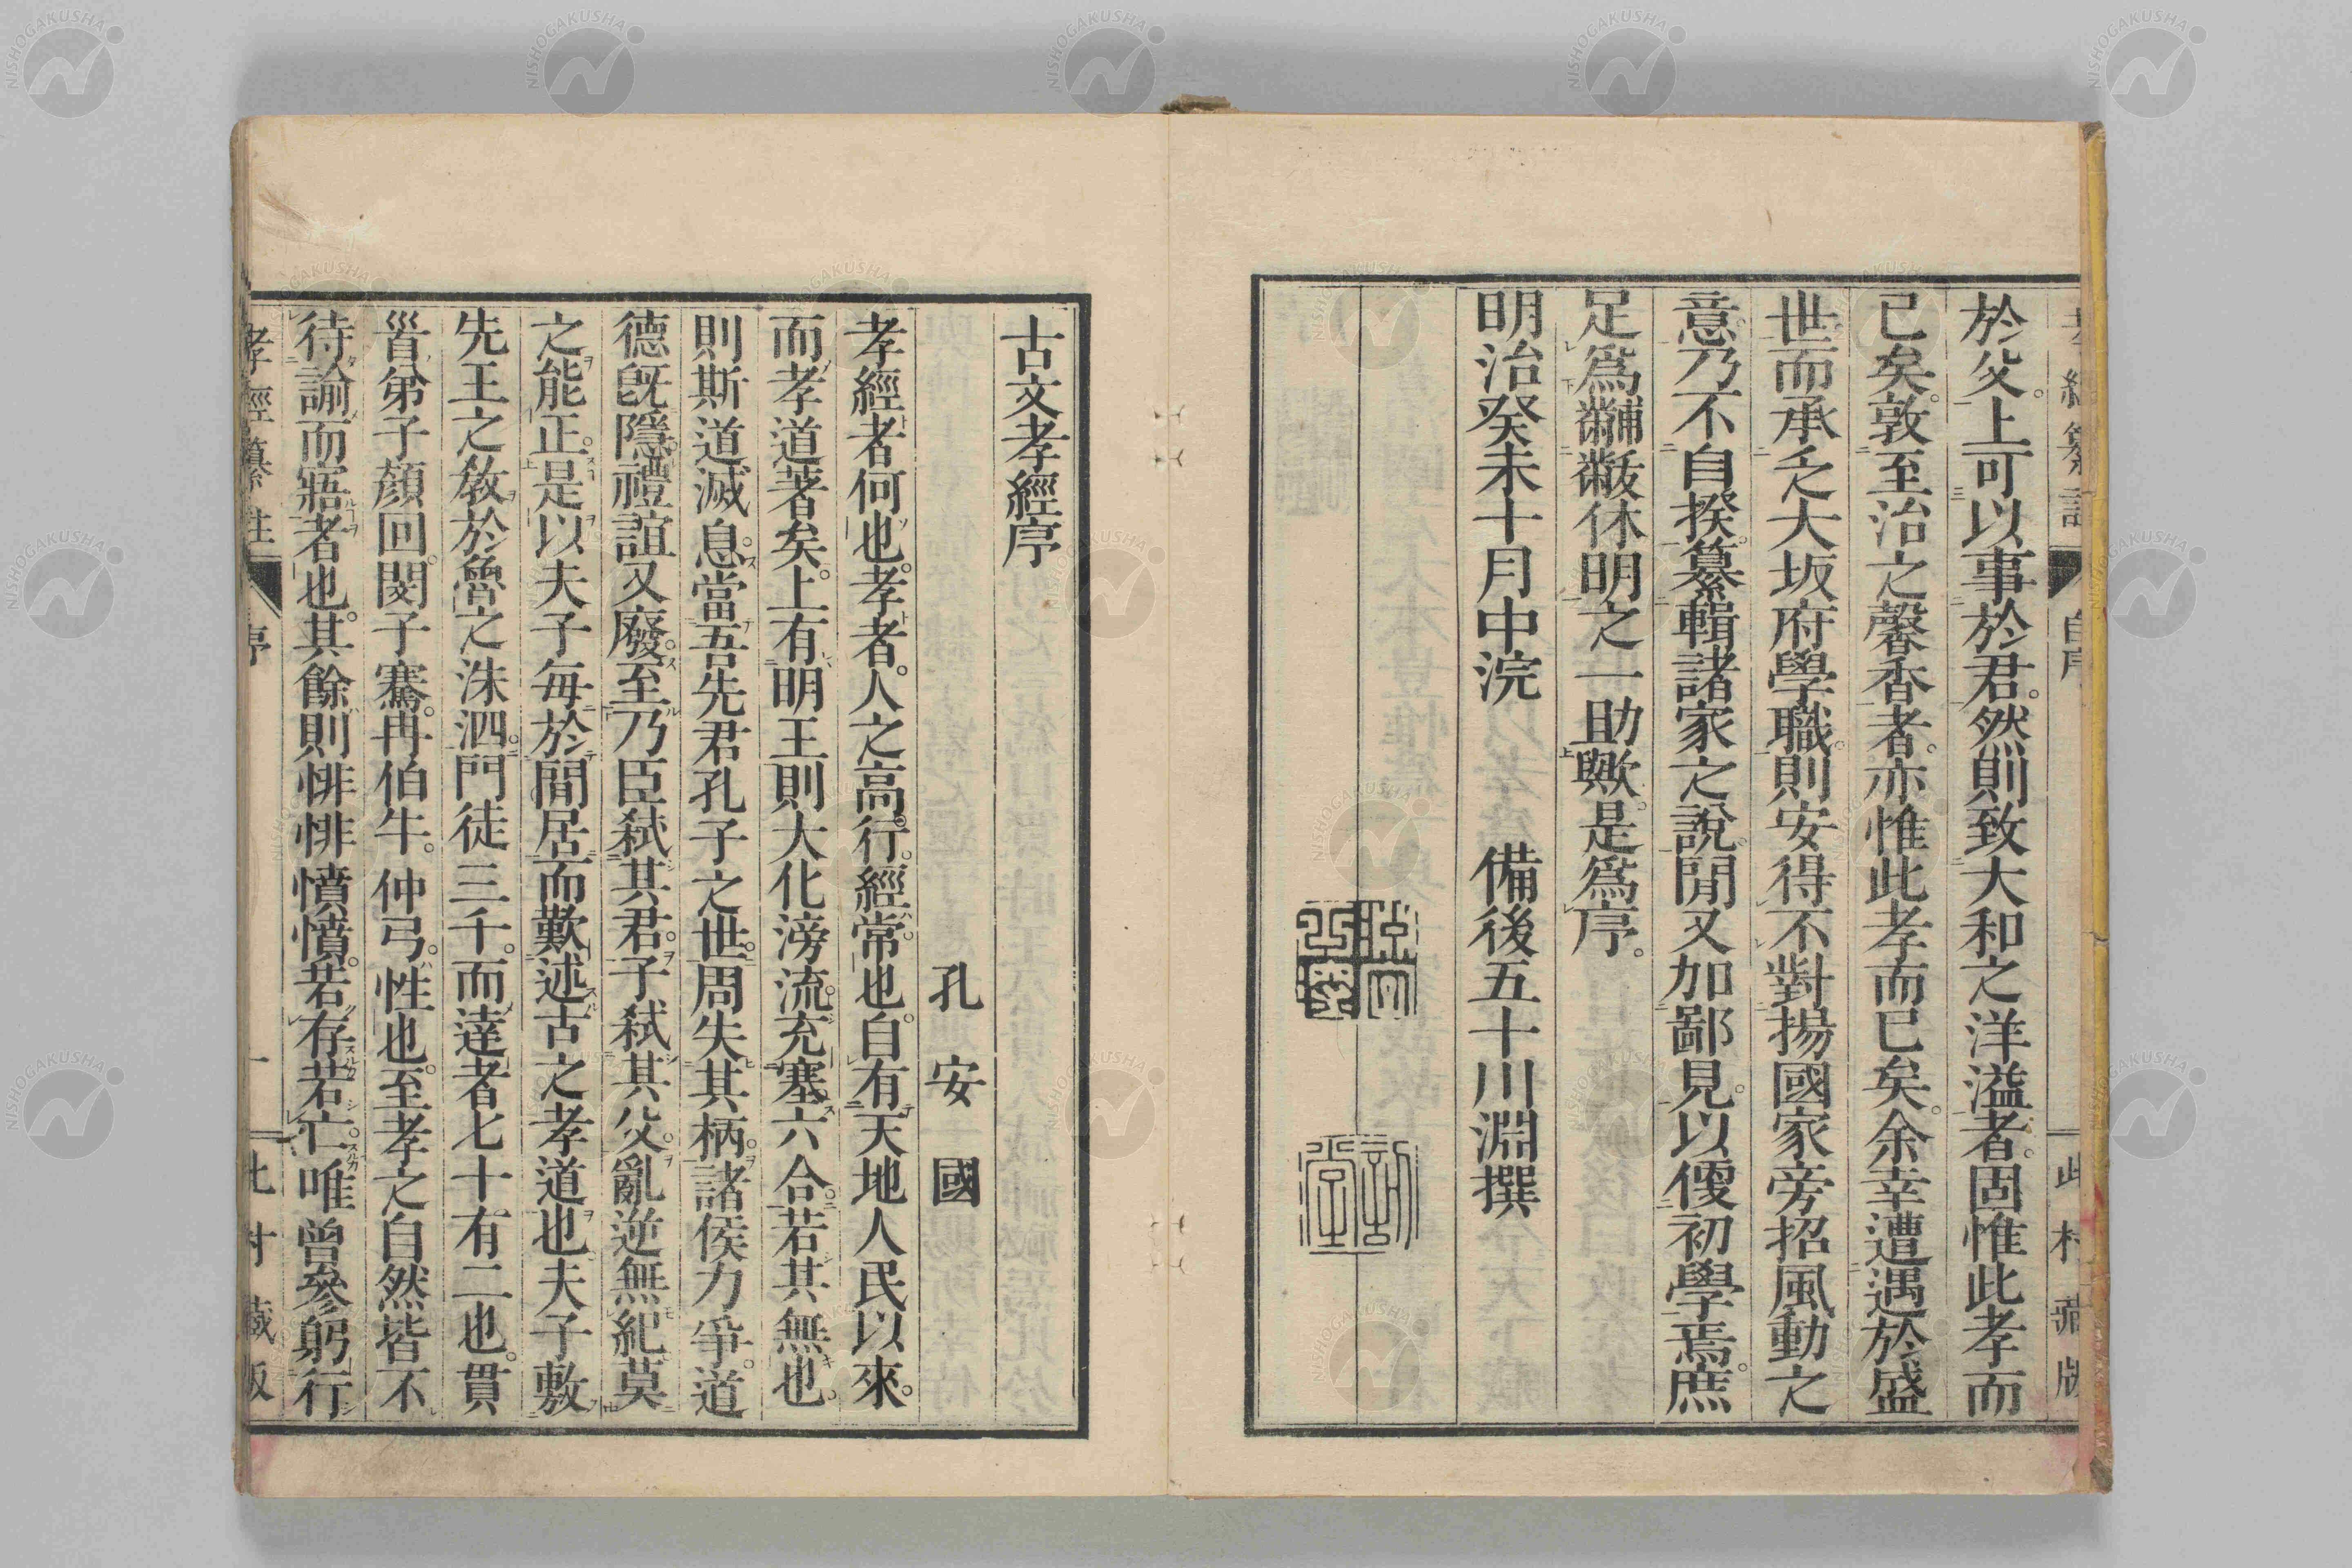 於父。上可以事於君。然則致大和之洋溢者。固惟此孝而
已矣。敦至治之馨香者。亦惟此孝而已矣。余幸遭遇於盛
世而承乏大坂府學職。則安得不對揚國家旁招風動之
意。乃不自揆。纂輯諸家之說。閒又加鄙見。以便初學焉。庶
足爲黼黻休明之一助歟。是爲序。
明治癸未十月中浣 備後五十川淵撰
古文孝經序
孔安國
孝經者何也。孝者。人之高行。經常也。自有天地人民以來。
而孝道著矣。上有明王則大化滂流。充塞六合。若其無也。
則斯道滅息。當吾先君孔子之世。周失其柄。諸侯力爭。道
德既隱。禮誼又廢。至乃臣弒其君。子弒其父。亂逆無紀莫
之能正。是以夫子每於閒居而歎述古之孝道也夫子敷
先王之敎於魯之洙泗。門徒三千。而達者七十有二也。貫
首弟子顏回。閔子騫。冉伯牛。仲弓。性也。至孝之自然皆不
待諭而寤者也。其餘則悱悱憤憤。若存若亡。唯曾參躬行
孝經纂註 序 一 此村藏版
NISHOGAKUSHA